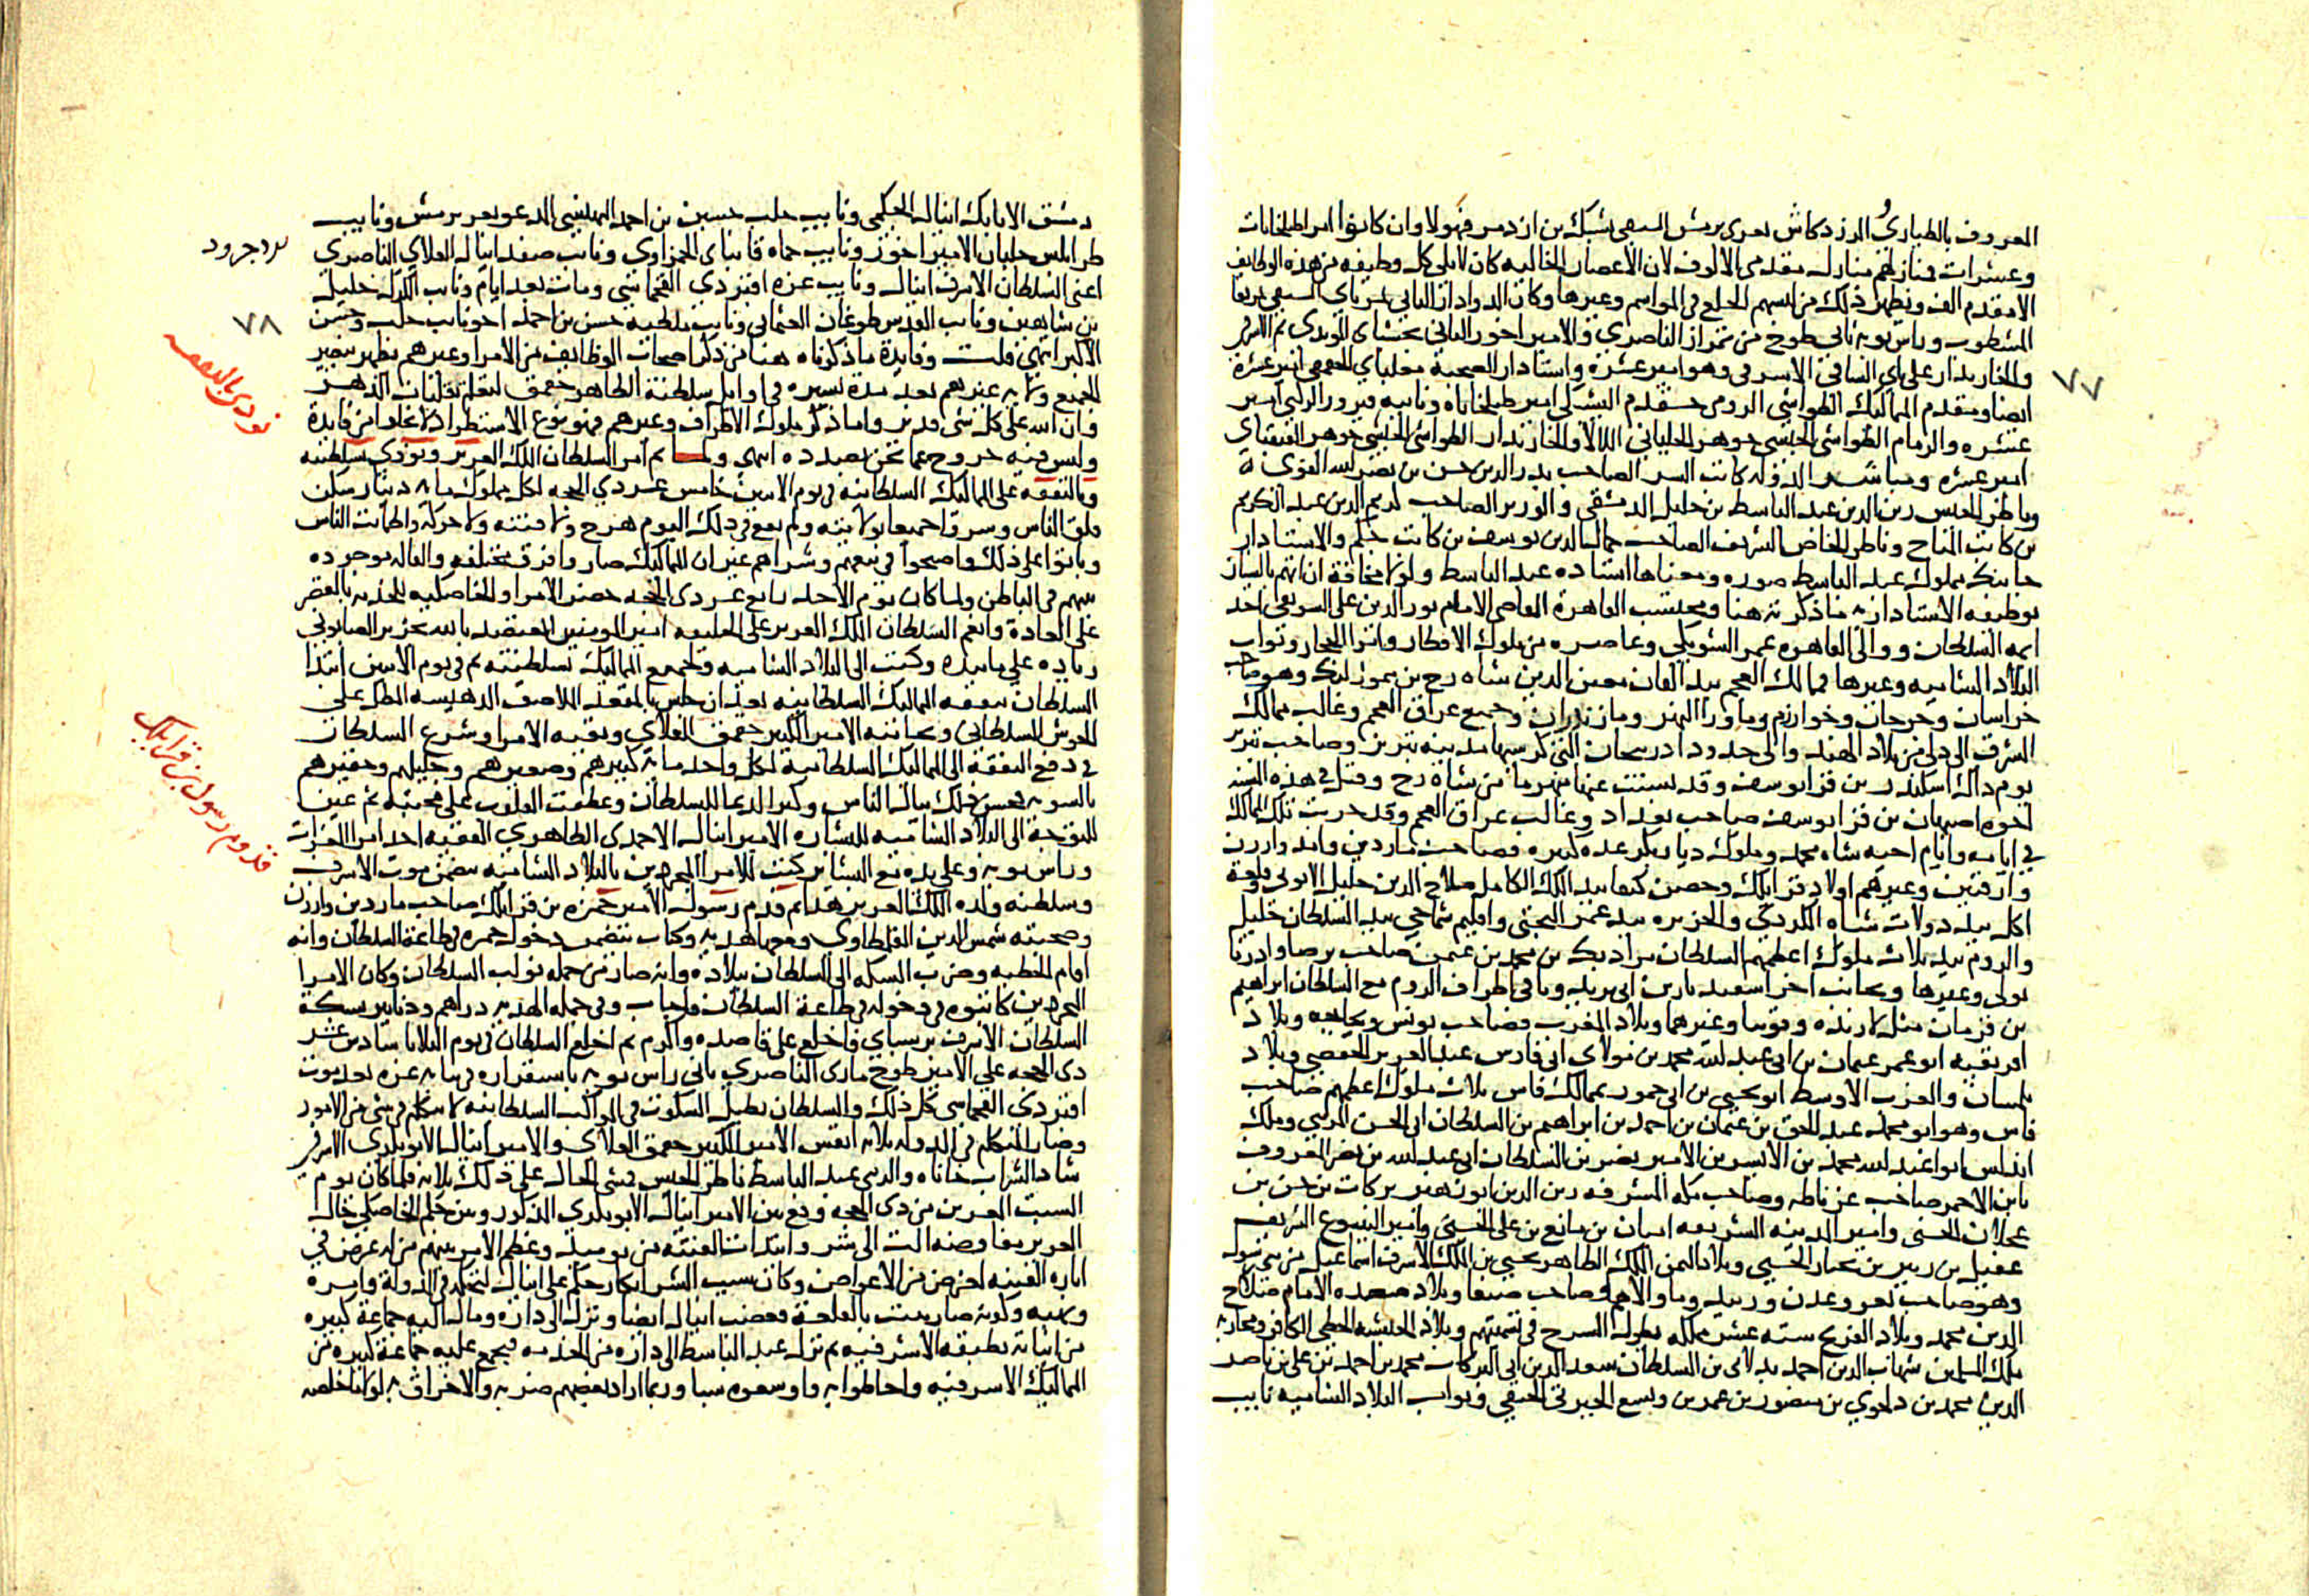 المعروف بالطياري والزردكاش تغري برمش السيفي يشبك بن ازدمر فهولا وان كانوا امرا طبلخانات
وعشرات فمنازلهم منازل مقدمي الالوف لان الاعصار الخالية كان لا يلي كل وظيفه من هذه الوظايف
الا مقدم الف ويظهر ذلك من لبسهم الخلع في المواسم وغيرها وكان الدوادار الثاني تمرباي السيفي تمربغا
المشطوب وراس نوبه ثاني طوخ من تمراز الناصري والامير اخور الثاني يخشباي المويدي ثم الاشرفي
والخازندار علي باي الساقي الاشرفي وهو امير عشرة واستادار الصحبة مغلباي الجقمقي امير عشرة
ايضا ومقدم المماليك الطواشي الرومي خشقدم اليشبكي امير طبلخاناه ونايبه فيروز الركني امير
عشره والزمام الطواشي الحبشي جوهر الجلباني اللالا والخازندار الطواشي الحبشي جوهر القنقباي
امير عشره ومباشرو الدوله كاتب السر الصاحب بدر الدين حسن بن نصر الله الفوي
وناظر الجيش زين الدين عبد الباسط بن خليل الدمشقي والوزير الصاحب كريم الدين عبد الكريم
بن كاتب المناخ وناظر الخاص الشريف الصاحب جمال الدين يوسف بن كاتب جكم والاستادار
جانبك مملوك عبد الباسط صوره ومعناها استاده عبد الباسط ولولا مخافة ان اتهم بالنسيان
بوظيفه الاستاداريه ما ذكرته هنا ومحتسب القاهرة القاضي الامام نور الدين علي السويفي احد
ايمه السلطان ووالي القاهره عمر الشوبكي ومعاصره من ملوك الاقطار وامرا الحجاز ونواب
البلاد الشاميه وغيرها فممالك العجم بيد القان معين الدين شاه رخ بن تيمورلنك وهو صاحب
خراسان وجرجان وخوارزم وما ورا النهر ومازندران وجميع عراق العجم وغالب ممالك
الشرق الى دلي من بلاد الهند والى حدود اذربيجان التي كرسيها مدينه تبريز وصاحب تبريز
يوم ذاك اسكندر بن قرا يوسف وقد تشتت عنها منهزما من شاه رخ وقتل في هذه السنه
اخوه اصبهان بن قرا يوسف صاحب بغداد وغالب عراق العجم وقد خربت تلك الممالك
في ايامه وايام اخيه شاه محمد وملوك ديار بكر عده كبيره فصاحب ماردين وامد وارزن
وارقنين وغيرهم اولاد قرايلك وحصن كيفا بيد الملك الكامل صلاح الدين خليل الايوبي وقلعة
اكل بيد دولات شاه الكردي والجزيره بيد عمر البختي واقليم شماخي بيد السلطان خليل
والروم بيد ثلاث ملوك اعظمهم السلطان مراد بك بن محمد بن عثمن صاحب برصا وادرنا
بولي وغيرها وبجانب اخر اسفنديار بن ابي يزيد وباقي اطراف الروم مع السلطان ابراهيم
بن قرمان مثل لارنده وقونيا وغيرهما وبلاد المغرب فصاحب تونس وبجايه وبلاد
افريقيه ابو عمر عثمان بن ابي عبد لله محمد بن مولاي ابي فارس عبد العزيز الحفصي وبلاد
تلمسان والغرب الاوسط ابو يحيى بن ابي حمو وبممالك فاس ثلاث ملوك اعظمهم صاحب
فاس وهو ابو محمد عبد الحق بن عثمان بن احمد بن ابراهيم بن السلطان ابي الحسن المريني وملك
اندلس ابو عبد الله محمد بن الايسر بن الامير نصر بن السلطان ابي عبد لله بن نصر المعروف
بابن الاحمر صاحب غرناطه وصاحب مكه المشرفه زين الدين ابو زهير بركات بن حسن بن
عجلان الحسني وامير المدينه الشريفه اميان بن مانع بن علي الحسيني وامير الينبوع الشريف
عقيل بن زبير بن نخبار الحسني وبلاد اليمن الملك الظاهر يحيى بن الملك الاشرف اسماعيل من بني رسول
وهو صاحب تعز وعدن وزبيد وما والاهم وصاحب صنعا وبلاد صعده الامام صلاح
الدين محمد وبلاد الفرنج سته عشر مملكه يطول الشرح في تسميتهم وبلاد الحبشه الحطي الكافر ومحاربه
ملك المسلمين شهاب الدين احمد بدلاي بن السلطان سعد الدين ابي البركات محمد بن احمد بن علي بن ناصر
الدين محمد بن دلحوي بن منصور بن عمر بن ولسمع الجبرتي الحنفي ونواب البلاد الشاميه نايب
٧٧
دمشق الاتابك اينال الجكمي ونايب حلب حسين بن احمد البهسني المدعو تغري برمش ونايب
طرابلس جلبان الامير اخور ونايب حماه قانباي الحمزاوي ونايب صفد اينال العلاي الناصري
اعني السلطان الاشرف اينال ونايب غزه اقبردي القجماسي ومات بعد ايام ونايب الكرك خليل
بن شاهين ونايب القدس طوغان العثماني ونايب ملطيه حسن بن احمد اخو نايب حلب وحسن
الاكبر انتهى قلت وفايدة ما ذكرناه هنا من ذكر اصحاب الوظايف من الامرا وغيرهم يظهر بتغيير
الجميع وولاية غيرهم بعد مدة يسيره في اوايل سلطنة الظاهر جقمق لتعلم تقلبات الدهر
وان الله على كل شي قدير واما ذكر ملوك الاطراف وغيرهم فهو نوع الاستطراد لا يخلوا من فايدة
وليس فيه خروج عما نحن بصدده انتهى ولما تم امر السلطان الملك العزيز ونودي بسلطنته
وبالنفقه على المماليك السلطانيه في يوم الاثنين خامس عشر ذي الحجه لكل مملوك مايه دينار سكن
قلق الناس وسروا جميعا بولايته ولم يقع في ذلك اليوم هرج ولا فتنه ولا حركه واطمانت الناس
وباتوا على ذلك واصبحوا في بيعهم وشراهم غير ان المماليك صاروا فرق مختلفه والقاله موجوده
بينهم في الباطن ولما كان يوم الاحد رابع عشر ذي الحجه حضر الامرا والخاصكيه الخدمه بالقصر
على العادة وانعم السلطان الملك العزيز على الخليفه امير المومنين المعتضد بالله بجزيره الصابوني
زياده على ما بيده وكتب الى البلاد الشاميه ولجميع الممالك بسلطنته ثم في يوم الاثنين ابتدا
السلطان بنفقه المماليك السلطانيه بعد ان جلس بالمقعد الملاصق الدهيشه المطل على
الحوش السلطاني وبجانبه الامير الكبير جقمق العلاي وبقيه الامرا وشرع السلطان
في دفع النفقه الى المماليك السلطانية لكل واحد مايه كبيرهم وصغيرهم وجليلهم وحقيرهم
بالسويه فحسن ذلك ببال الناس وكثر الدعا للسلطان وعطفت القلوب على محبته ثم عين
للتوجه الى البلاد الشاميه للبشاره الامير اينال الاحمدي الظاهري الفقيه احد امرا العشرات
وراس نوبه وعلى يده مع البشاير كتب للامرا المجردين بالبلاد الشاميه تتضمن موت الاشرف
وسلطنه ولده الملك العزيز هذا ثم قدم رسول الامير حمزه بن قرايلك صاحب ماردين وارزن
وصحبته شمس الدين القلمطاوي ومعهما هديه وكتاب يتضمن دخول حمزه في طاعة السلطان وانه
اقام الخطبه وضرب السكه الى السلطان ببلاده وانه صار من جمله نواب السلطان وكان الامرا
المجردين كاتبوه في دخوله في طاعة السلطان فاجاب وفي جمله الهديه دراهم ودنانير بسكة
السلطان الاشرف برسباي فاخلع على قاصده واكرم ثم اخلع السلطان في يوم الثلاثا سادس عشر
ذي الحجه على الامير طوخ مازي الناصري ثاني راس نوبه باستقراره في نيابه غزه بعد موت
اقبردي القجماسي كل ذلك والسلطان يطيل السكوت في المواكب السلطانيه لا يتكلم في شي من الامور
وصار المتكلم في الدوله ثلاثه انفس الامير الكبير جقمق العلاي والامير اينال الابوبكري الاشرفي
شاد الشراب خاناه والزيني عبد الباسط ناظر الجيش فمشي الحال على ذلك ثلاثه فلما كان يوم
السبت العشرين من ذي الحجه وقع بين الامير اينال الابوبكري المذكور وبين جكم الخاصكي خال
العزيز مفاوضه الت الى شر وابتدات الفتنه من يوميذ وعظم الامر بينهم من له غرض في
اثاره الفتنه لغرض من الاغراض وكان سبب الشر انكار جكم على اينال لتحكمه في الدولة وامره
ونهيه وكونه صار يبيت بالقلعة فغضب اينال ايضا ونزل الى داره ومال اليه جماعة كبيره
من اينالته بطبقه الاشرفيه ثم نزل عبد الباسط الى داره من الخدمه فتجمع عليه جماعة كبيره من
المماليك الاشرفيه واحاطوا به واوسعوه سبا وربما اراد بعضهم ضربه والاخراق به لولا ما خلصه
٧٨
نودي بالنفقه
قدوم رسول بن قرايلك